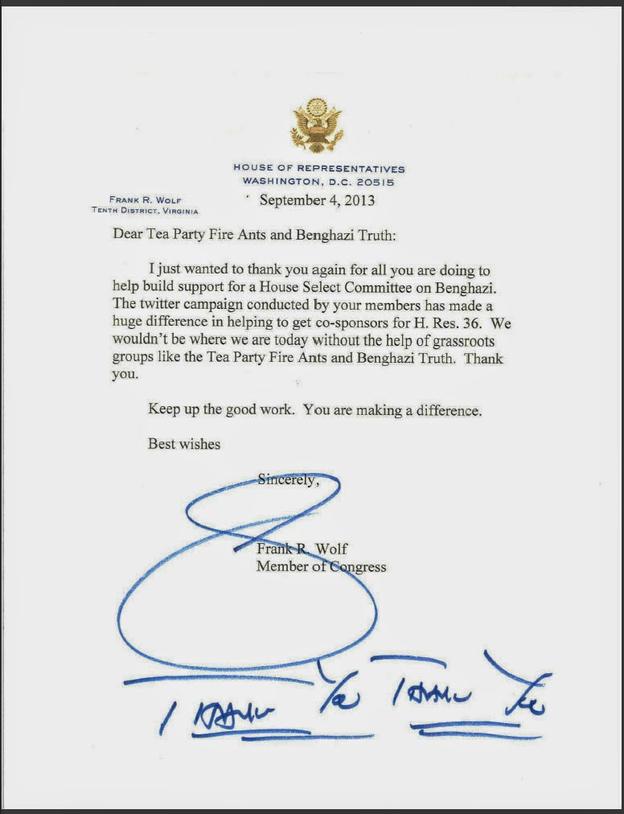 HOUSE OF REPRESENTATIVES
WASHINGTON, D.C. 20515
FRANK R. WOLF
TENTH DISTRICT, VIRGINIA
September 4, 2013
Dear Tea Party Fire Ants and Benghazi Truth:
I just wanted to thank you again for all you are doing to
help build support for a House Select Committee on Benghazi.
The twitter campaign conducted by your members has made a
huge difference in helping to get co-sponsors for H. Res. 36. We
wouldn't be where we are today without the help of grassroots
groups like the Tea Party Fire Ants and Benghazi Truth. Thank
you.
Keep up the good work. You are making a difference.
Best wishes
Sincerely,
Frank R. Wolf
Member of Congress
THANK You THANK You